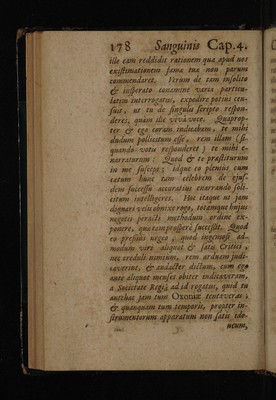 178 Sanguinis Cap.4.
ille eam reddidit rationem qua apud nos
existimationem fama tua non parum
commendaret. Verum de tam insolito
& insperato conamine varia particu-
latim interrogatus, expedire potius cen-
suit, ut tu de singulis scripto respon-
deres, quàm ille vivâ voce. Quaprop-
ter & ego coram indicabam, te mihi
dudum pollicitum esse, rem illam (si-
quando voto responderet) te mihi e-
narraturum: Quod & te præstiturum
in me suscepi; idque eo plenius cum
ratum hunc tam celebrem de ejus-
dem successu accuratius enarrando soli-
citum intelligeres. Hoc itaque ut jam
digneris velis obnixe rogo, totamque hujus
negotii peracti methodum ordine ex-
ponere, qua tam prosperè successit. Quod
eo pressius urgeo, quod ingeniosi ad-
modum viri aliquot & satis Critici,
nec creduli nimium, rem arduam judi-
caverint, & audacter dictum, cum ego
ante aliquot menses obiter indicaveram,
a Societate Regiâ ad id rogatus, quid tu
antehac jam tum Oxoniæ tentaveras;
& quanquam tum temporis, propter in-
strumentorum apparatum non satis ido-
neum,